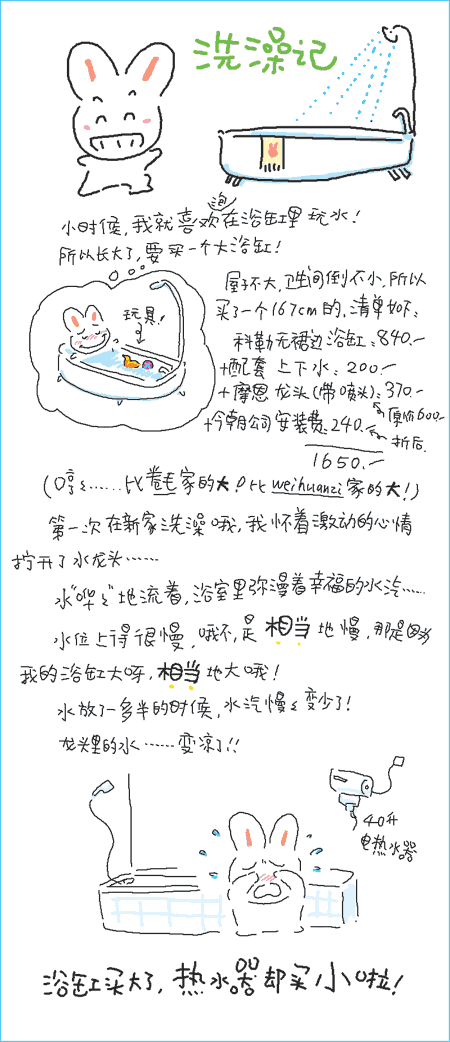 洗澡记
小时候,我就喜欢泡在浴缸里玩水!
所以长大了,要买一个大浴缸!
玩具!
屋子不大,卫生间倒不小,所以
买了一个167cm的,清单如下:
科勒无裙边浴缸:840.-
+配套上下水:200.-
+摩恩龙头(带喷头):370.-
原价600.-
折后
+今朝公司安装费:240.-
1650.-
(哼〻……比卷毛家的大!比weihuanzi家的大!)
第一次在新家洗澡哦,我怀着激动的心情
拧开了水龙头……
水“哗〻”地流着,浴室里弥漫着幸福的水汽……
水位上得很慢,哦不,是相当地慢,那是因为
我的浴缸大呀,相当地大哦!
水放了一多半的时候,水汽慢〻变少了!
龙头里的水……变凉了!!
40升
电热水器
浴缸买大了,热水器却买小啦!